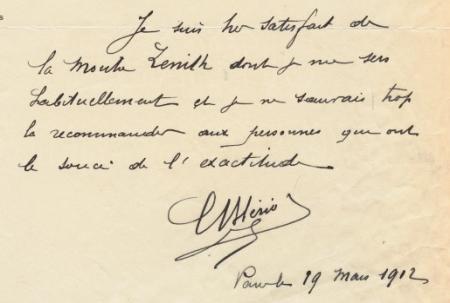 Je suis tres satisfait de
la montre Zenith dont je me sers
habituellement et je ne saurais trop
la recommander aux personnes qui ont
le souci de l'exactitude.
L Blériot
le 19 Mars 1912